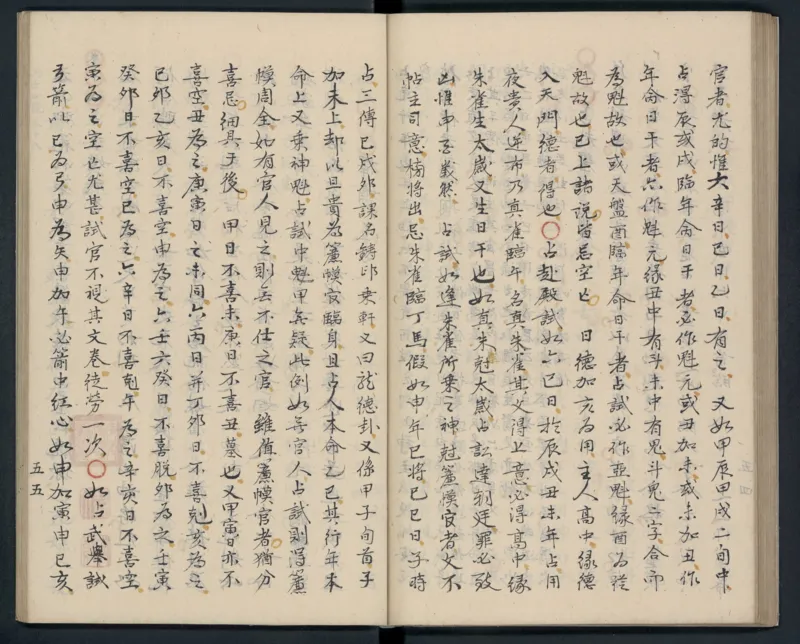 官者尤的惟大辛日己日乙日有之又如甲辰甲戌二旬中
占淂辰或戌臨年命日干者必作魁元或丑加未或未加丑作
年命日干者亦作魁元緣丑中有斗未中有鬼斗鬼二字合而
為魁故也或天盤酉臨年命日干者占試必作亞魁緣酉為從
魁故也已上諸說皆忌空亡日德加亥為用主人高中緣德
入天門德者得也〇占赴殿試如六己日於辰戌丑未年占用
夜貴人逆布乃真雀臨午名真朱雀其文得上意必得高中緣
朱雀生太歲又生日干也如真朱尅太歲占訟達刑廷罪必致
凶惟申不義然占試如逢朱雀所乗之神尅簾幙官者文不
帖主司意榜將出忌朱雀臨丁馬假如申年巳將己巳日子時
占三傳巳戌卯課名鑄印乗軒又曰龍德卦又係甲子旬首子
加未上却以旦貴為簾幙官臨身且占人本命乙巳其行年本
命上又乗神魁占試中魁甲無疑此例如無官人占試則得簾
幙周全如有官人見之則去不仕之官雖值簾幙官者猶分
喜忌細具于後甲日不喜未庚日不喜丑墓也又甲寅日亦不
喜空丑為之庚寅日之未同六丙日并丁卯日不喜尅亥為之
己卯乙亥日不喜空申為之六壬六癸日不喜脱卯為之壬寅
癸卯日不喜空巳為之六辛日不喜尅午為之辛亥日不喜空
寅為之空亡尤甚試官不視其文卷徒劳一次〇如占武舉試
弓箭以巳為弓申為矢申加午必箭中紅心如申加寅申巳亥
五五